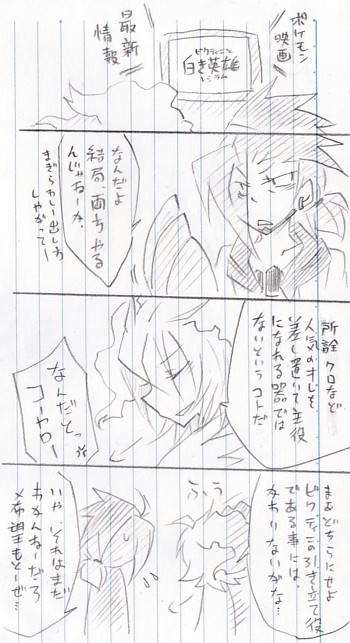 ポケモン
映画
最新
情報
ビクティニと
白き英雄
レシラム
なんだよ
結局、両方やる
んじゃねーか、
まぎらわしー出し方
しやがって…
所詮クロなど
人気のオレを
差し置いて主役
になれる器では
ないというコトだ
なんだとっ
コーヤロー
まぁどちらにせよ
ビクティニの引き立て役
である事には、
かわりないがな…
ふぅ
いや、それはまだ
わかんねーだろ
希望もとーぜ…